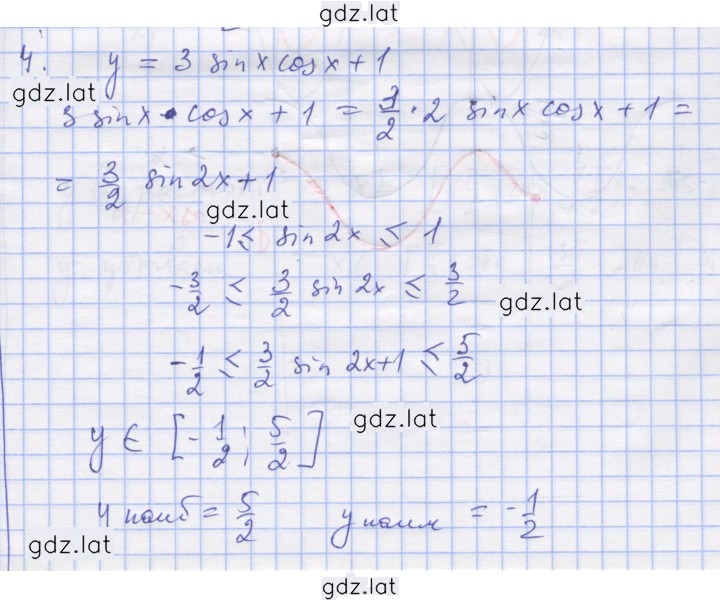 gdz.lat
4. y = 3 sinx cosx + 1
gdz.lat
3 sinx · cosx + 1 = 3/2 · 2 sinx cosx + 1 =
= 3/2 sin2x + 1
gdz.lat
-1 ≤ sin2x ≤ 1
-3/2 ≤ 3/2 sin 2x ≤ 3/2
gdz.lat
-1/2 ≤ 3/2 sin 2x+1 ≤ 5/2
gdz.lat
y ∈ [-1/2; 5/2]
y наиб = 5/2 y наим = -1/2
gdz.lat
gdz.lat